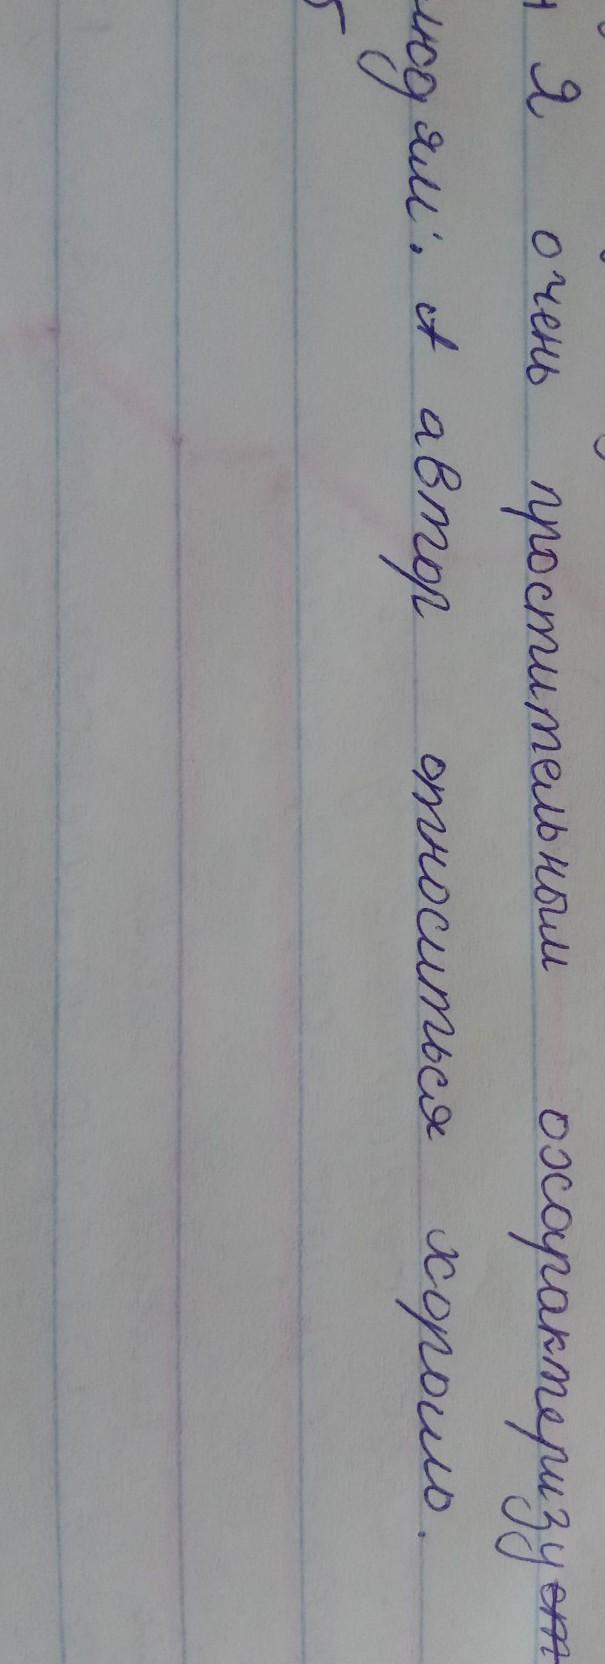 Я очень простительным охарактеризу
людям. А автор относиться хорошо.